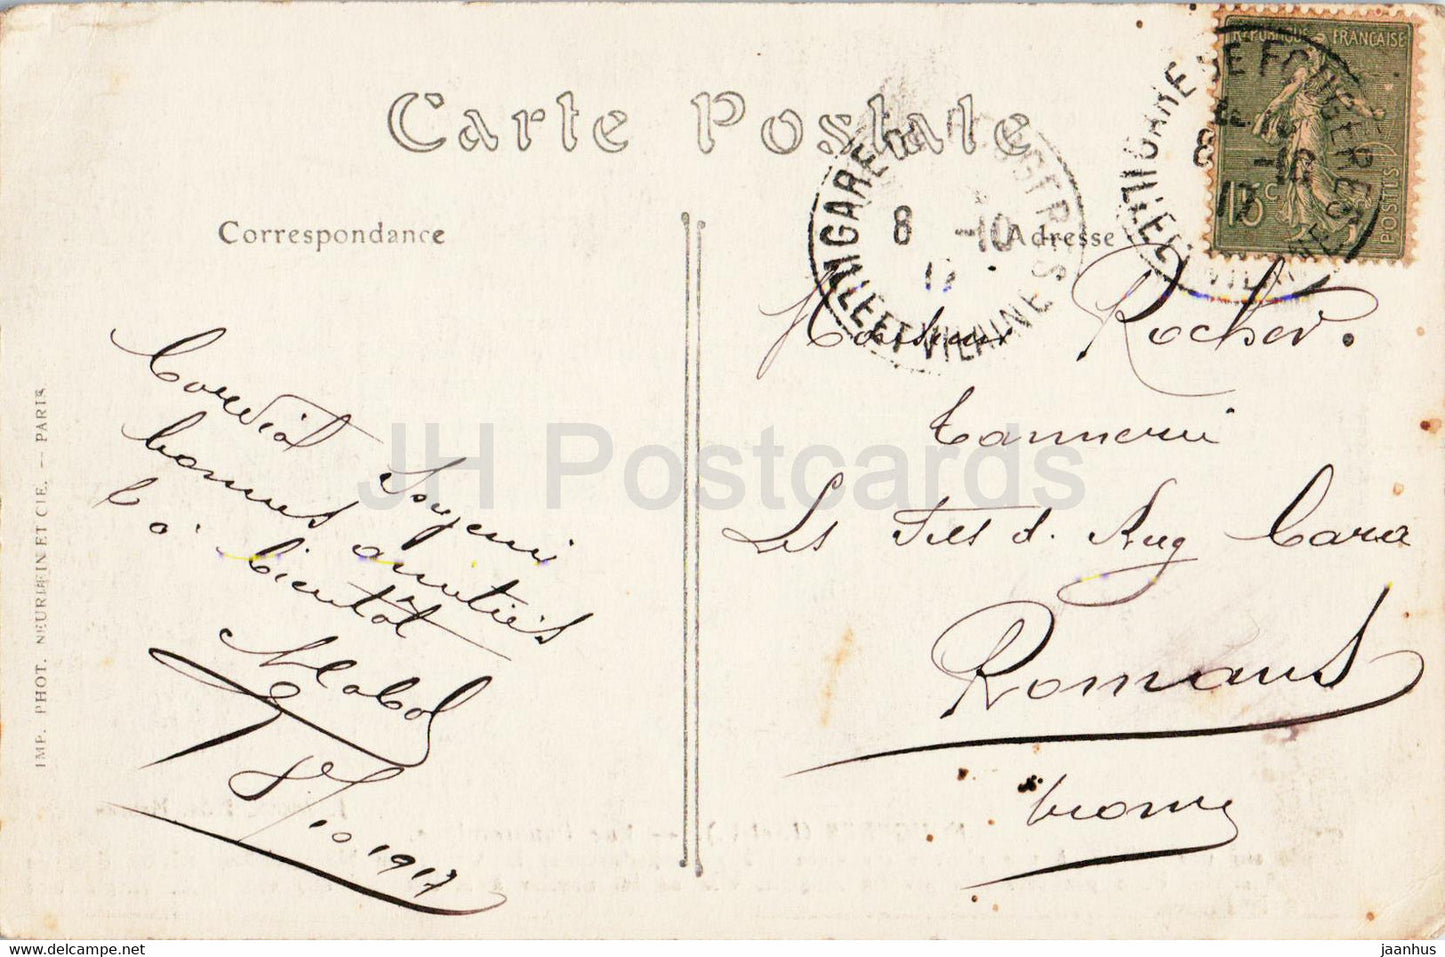 Carte Postale
REPUBLIQUE FRANÇAISE
15c
POSTES
GARE DE FOUGERES
8 -10
17
ILLE ET VILAINE
GARE DE FOUGERES
8 -10
17
ILLE ET VILAINE
Correspondance
Cordial Souvenir
bonnes amitiés
à bientôt
8/10 1917
Adresse
Monsieur Rocher.
Tannerie
Les Fils d. Aug
Romans
Drome
IMP. PHOT. NEURDEIN ET CIE. — PARIS
JH Postcards
www.delcampe.net
jaanhus